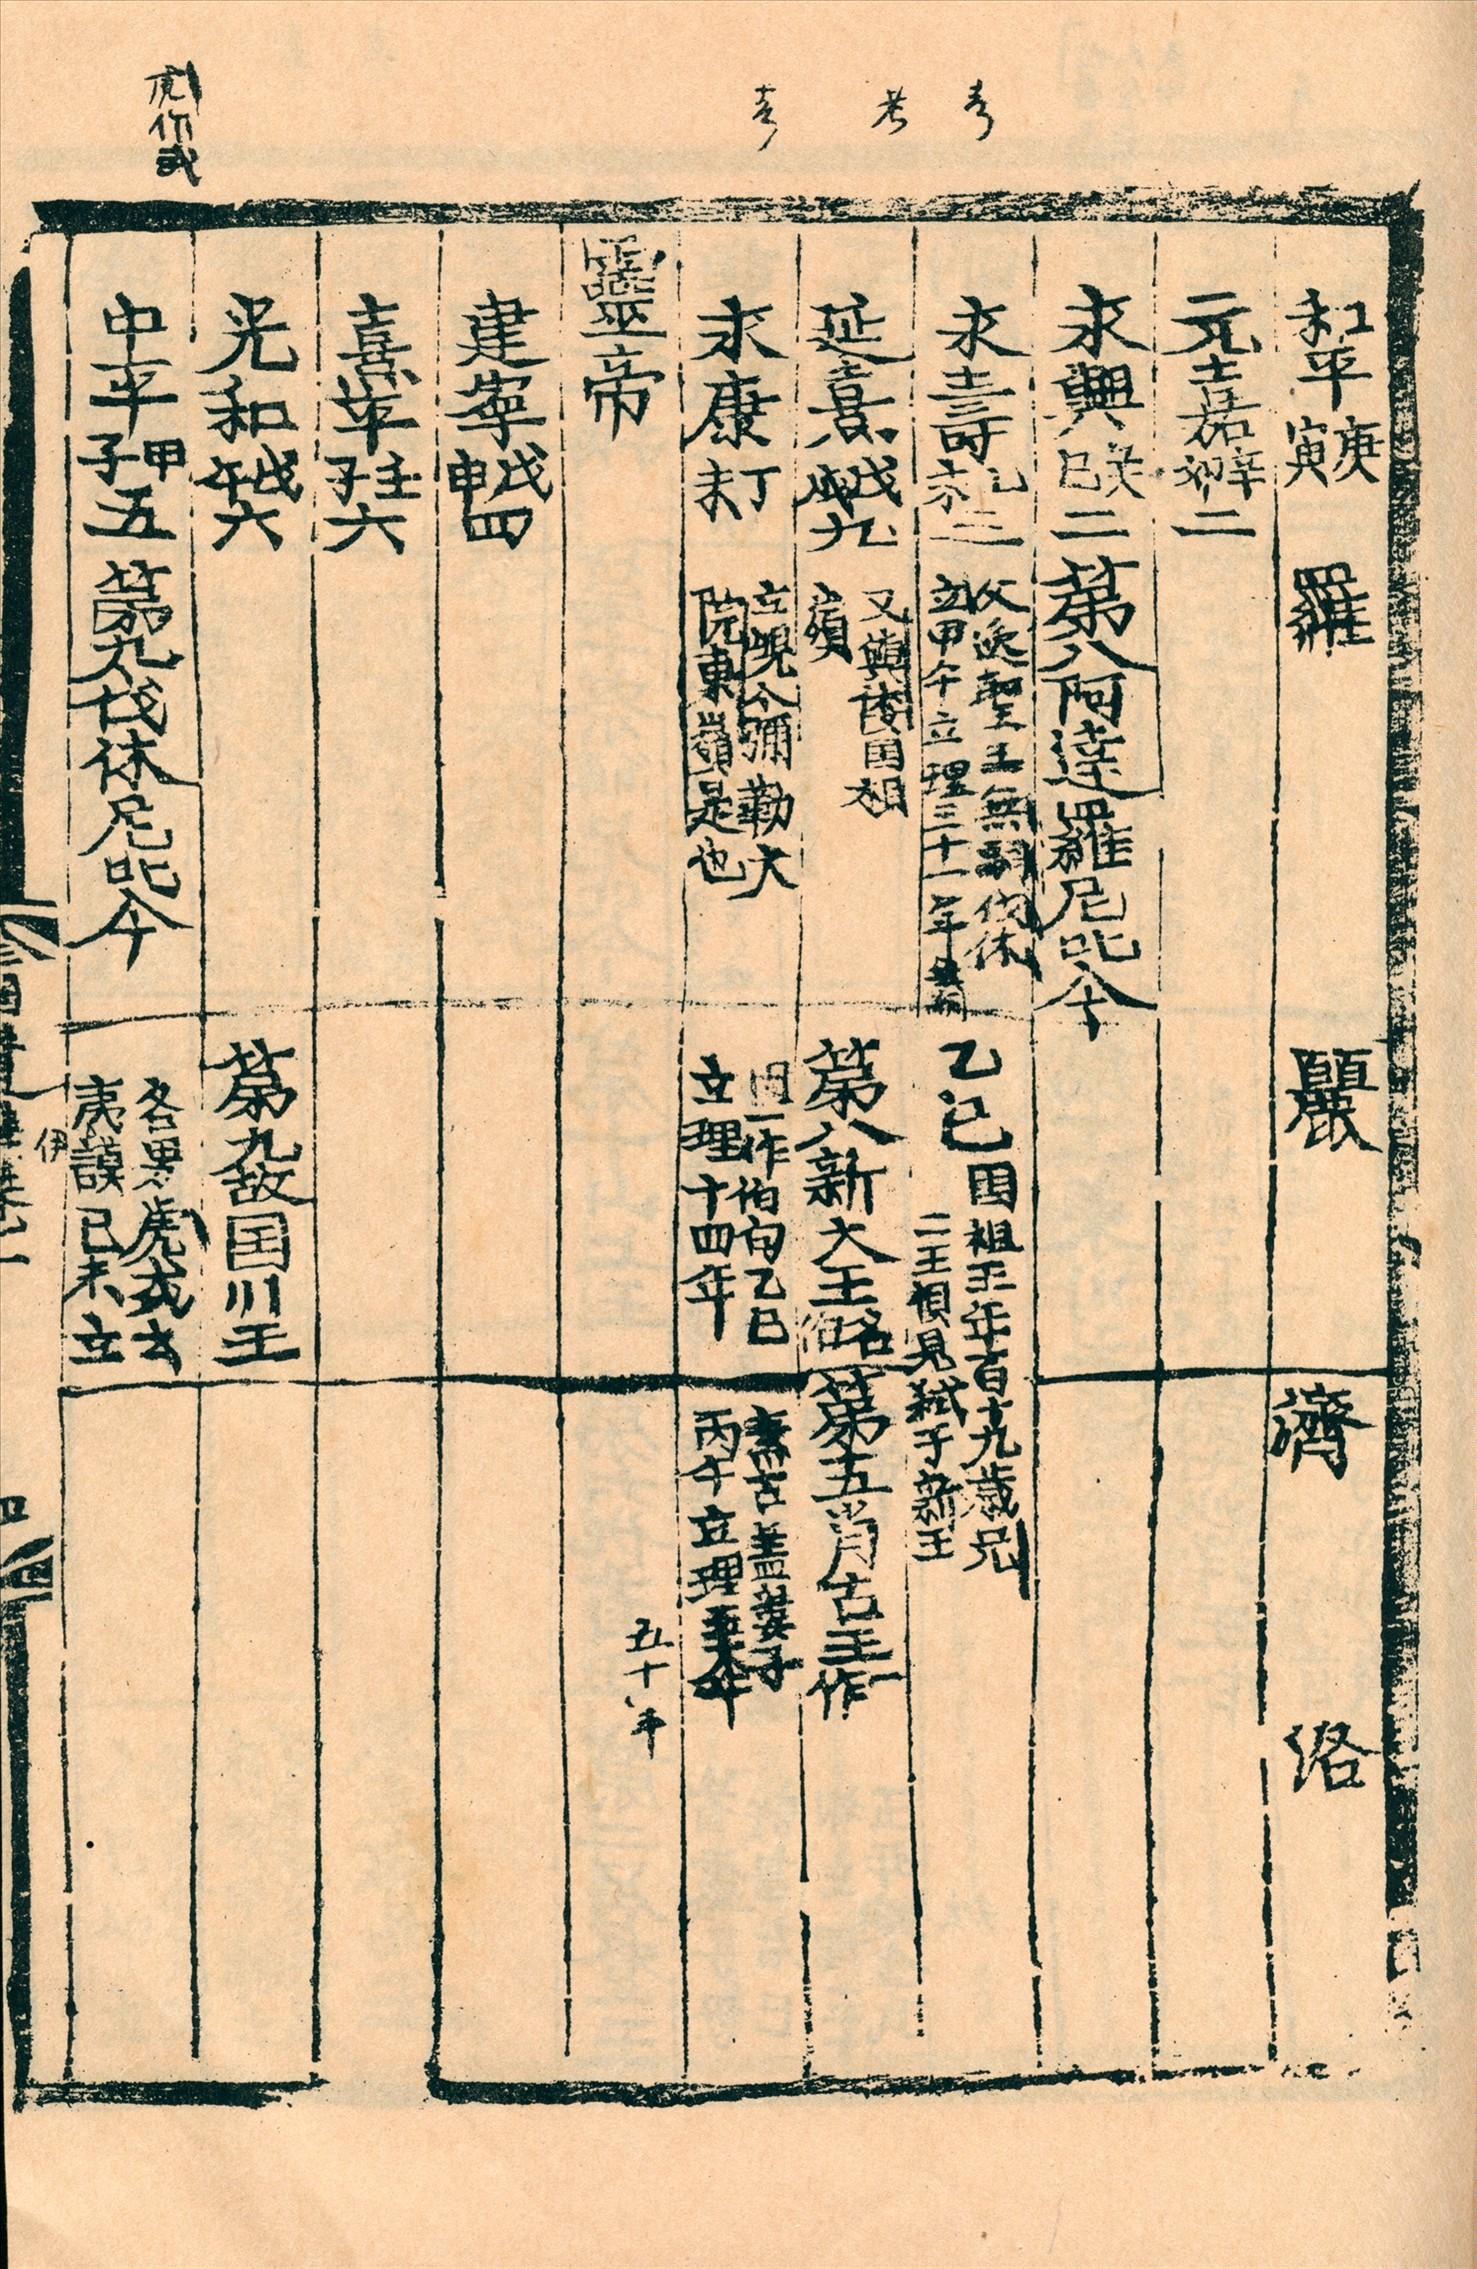 和平庚寅 羅 麗 濟 洛
元嘉辛卯二
永興癸巳二 第八阿達羅尼叱今
永壽乙未三
父逸聖王無嗣
立甲午立理三十一年
乙巳国祖王年百十九歳兄
二王俱見弑于新王
延熹戊戌九
又與倭国相
嶺
第八新大王名伯
第五肖古王一作
永康丁未
立峴今彌勒大
院東嶺是也
一作伯句乙巳
立理十四年
素古盖婁子
丙午立理
五十年
靈帝
建寧戊申四
熹平壬子六
光和戊午六 第九故国川王
中平甲子五 第九伐休尼叱今
各男虎或云
夷謨已未立
伊
虎作武
考
考
考
三国遺